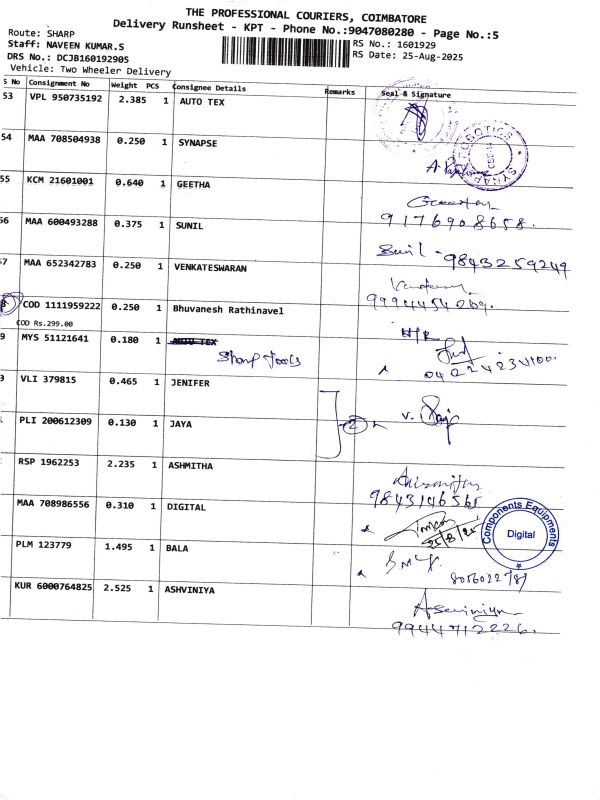 THE PROFESSIONAL COURIERS, COIMBATORE
Delivery Runsheet - KPT - Phone No.:9047080280 - Page No.:5
Route: SHARP
Staff: NAVEEN KUMAR.S
DRS No.: DCJB160192905
Vehicle: Two Wheeler Delivery
RS No.: 1601929
RS Date: 25-Aug-2025
S No Consignment No Weight PCS Consignee Details Remarks Seal & Signature
53 VPL 950735192 2.385 1 AUTO TEX
54 MAA 708504938 0.250 1 SYNAPSE
55 KCM 21601001 0.640 1 GEETHA
9176908658.
56 MAA 600493288 0.375 1 SUNIL
Sunil - 9843259249
57 MAA 652342783 0.250 1 VENKATESWARAN
9994454269.
8 COD 1111959222 0.250 1 Bhuvanesh Rathinavel
COD Rs.299.00
9 MYS 51121641 0.180 1 AUTO TEX
Sharp Tools
VLI 379815 0.465 1 JENIFER
PLI 200612309 0.130 1 JAYA
2
RSP 1962253 2.235 1 ASHMITHA
9843146565
MAA 708986556 0.310 1 DIGITAL
25/8/25
Components Equipments
Digital
PLM 123779 1.495 1 BALA
KUR 6000764825 2.525 1 ASHVINIYA
9944712226.